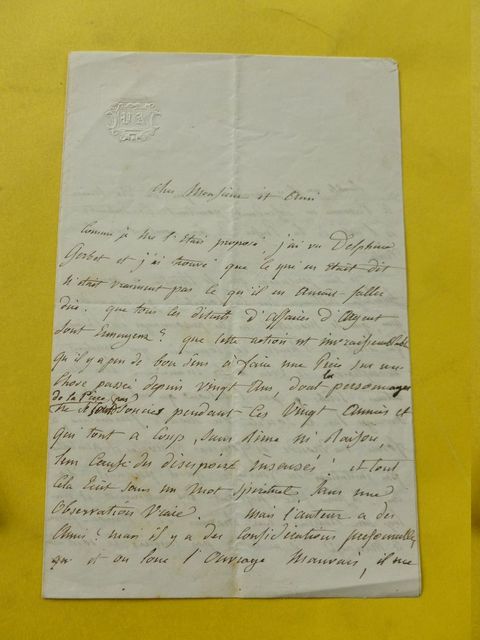 Cher Monsieur et Ami
Comme je me l'étais proposé j'ai vu Delphine
Gerbet et j'ai trouvé que ce qui en était dit
n'était vraiment pas ce qu'il en aurait fallu
dire. que tous les détails d'affaires d'argent
sont Ennuyeux? que cette action est invraisemblable
qu'il y a peu de bon sens à faire une Pièce sur une
chose passée depuis vingt Ans, dont les personnages
de la Pièce pas
ne se sont souciés pendant ces Vingt Années et
qui tout à Coup, sans Rime ni Raison,
sans Cause des désespoirs insensés! et tout
Cela Ecrit sans un Mot Spirituel, sans une
Observation Vraie. Mais l'auteur a des
Amis? mais il y a des Considérations personnelles
et on loue l'Ouvrage Mauvais, il me